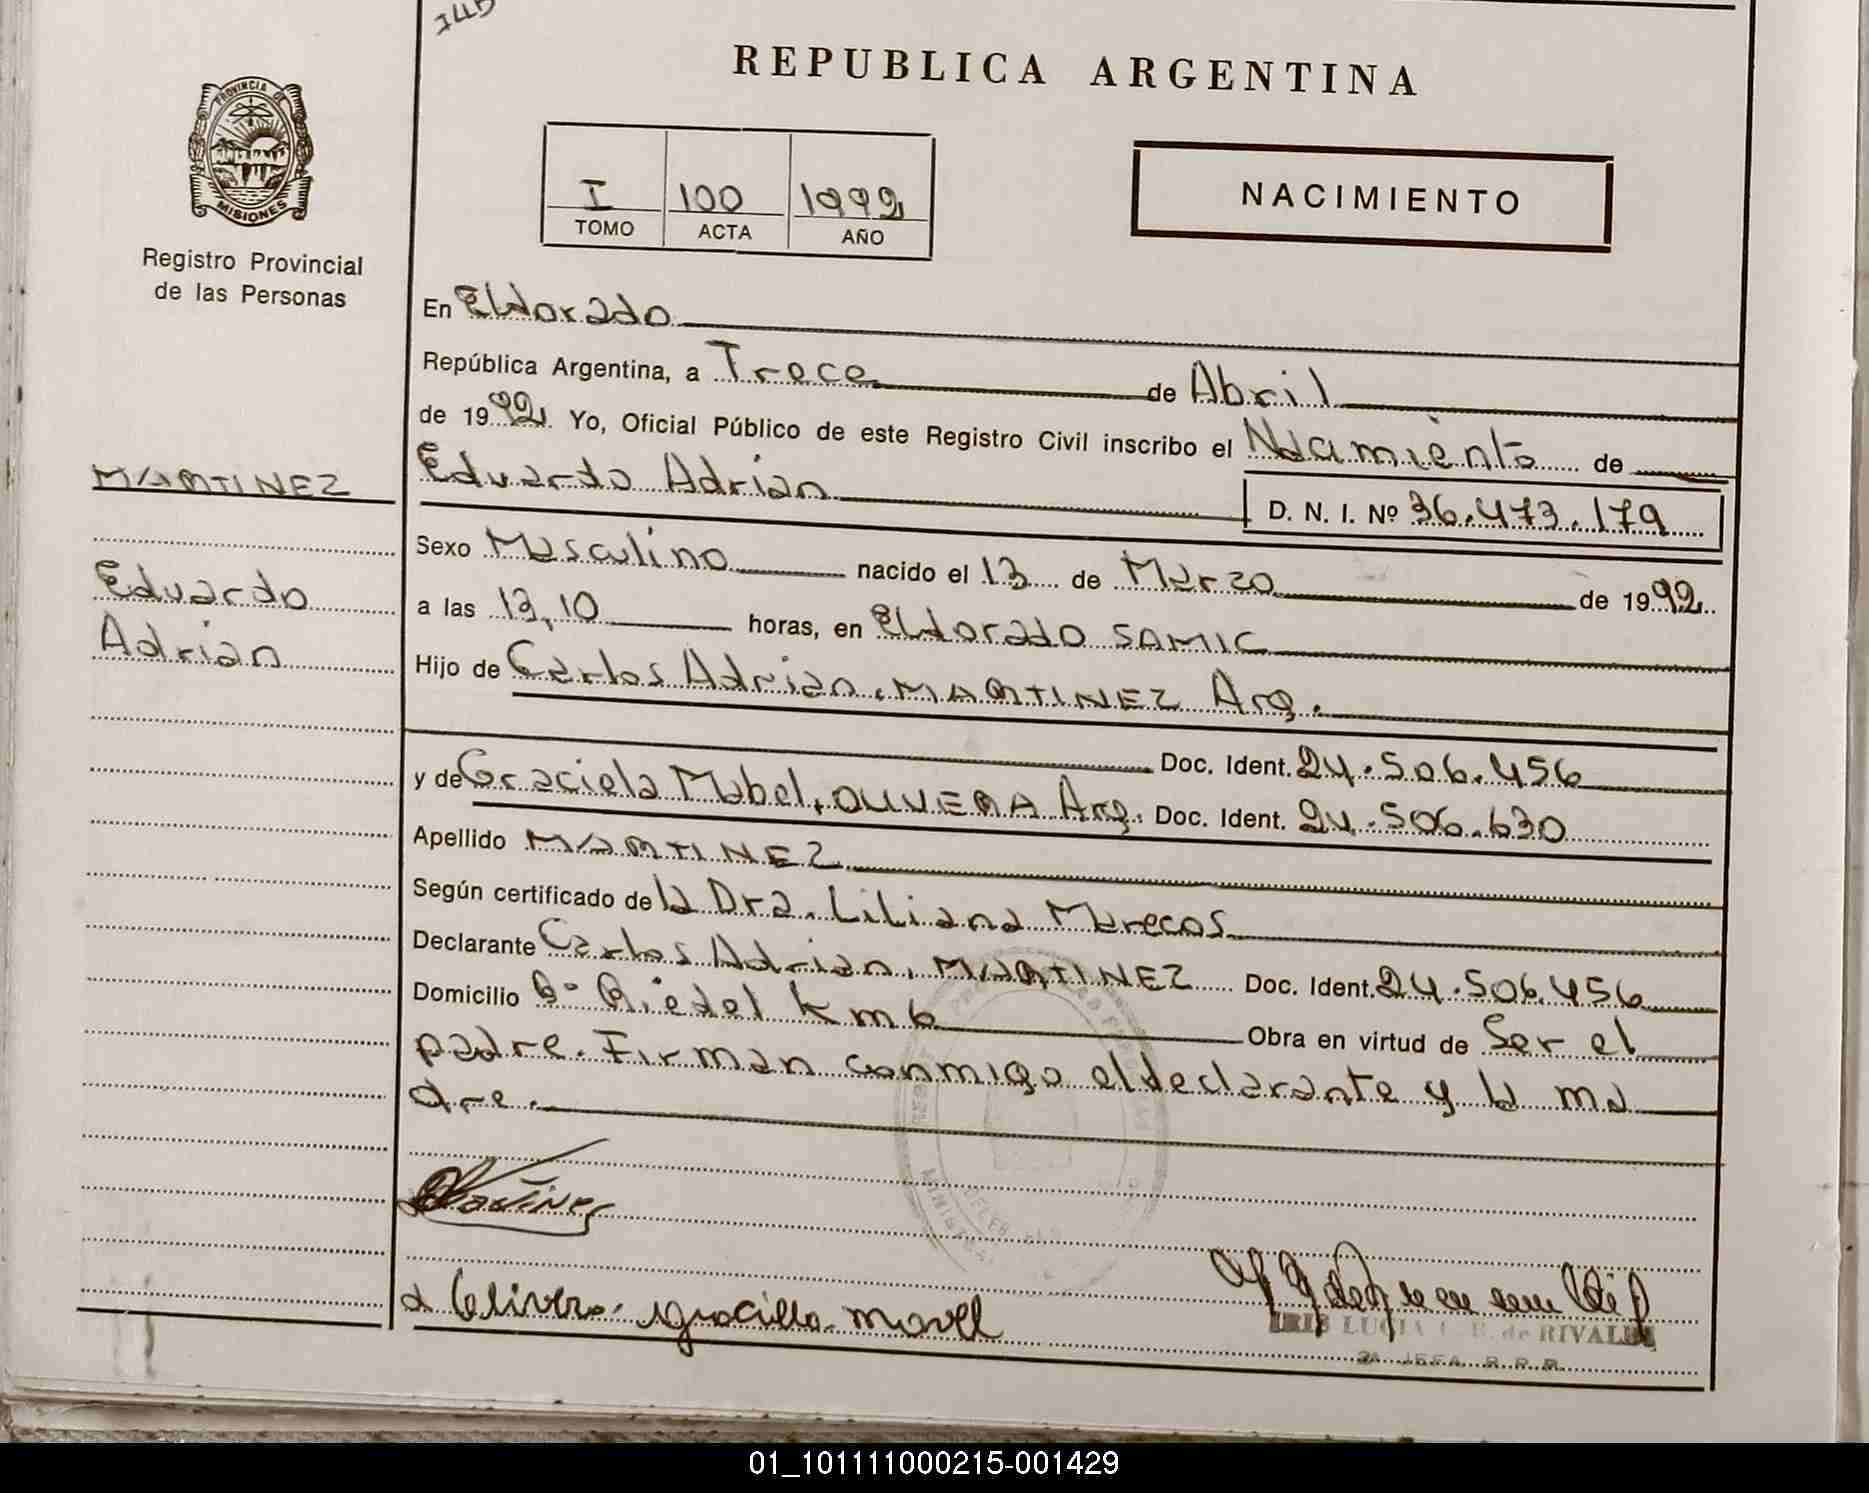 REPUBLICA ARGENTINA
PROVINCIA DE
MISIONES
Registro Provincial
de las Personas
I 100 1992
TOMO ACTA AÑO
NACIMIENTO
MARTINEZ
Eduardo
Adrian
En Eldorado
República Argentina, a Trece de Abril
de 1992. Yo, Oficial Público de este Registro Civil inscribo el Nacimiento de
Eduardo Adrian D. N. I. Nº 36.473.179
Sexo Masculino nacido el 13 de Marzo de 1992
a las 13,10 horas, en Eldorado SAMIC
Hijo de Carlos Adrian, MARTINEZ Arg.
Doc. Ident. 24.506.456
y de Graciela Mabel, OLIVERA Arg. Doc. Ident. 24.506.630
Apellido MARTINEZ
Según certificado de la Dra. Liliana Marecos
Declarante Carlos Adrian, MARTINEZ Doc. Ident. 24.506.456
Domicilio Bº Riedel Km 6 Obra en virtud de Ser el
padre. Firman conmigo el declarante y la ma
dre.
IRIS LUCIA de RIVALDI
2A JEFA R.R.P.
01_101111000215-001429